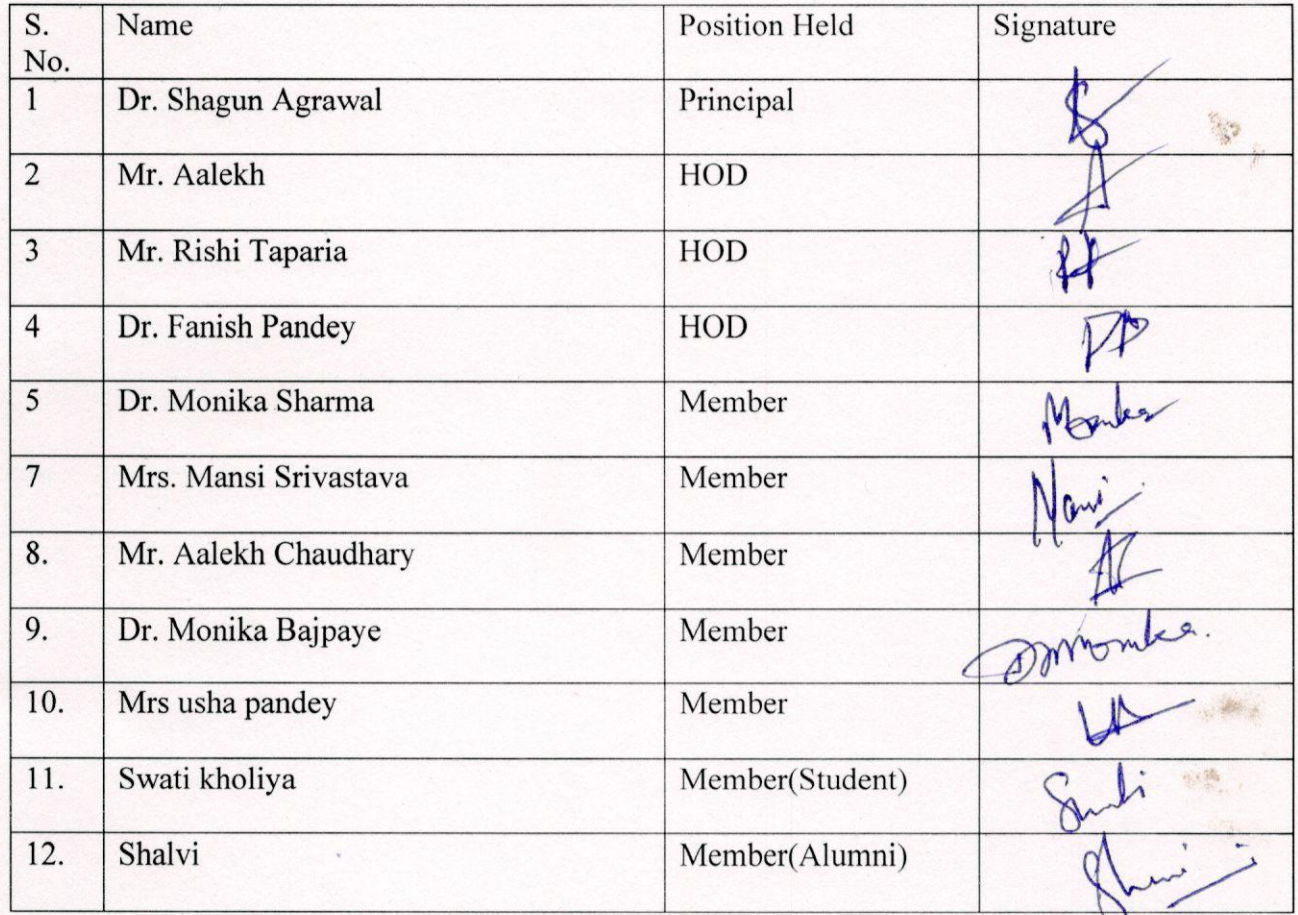 S. No. Name Position Held Signature
1 Dr. Shagun Agrawal Principal
2 Mr. Aalekh HOD
3 Mr. Rishi Taparia HOD
4 Dr. Fanish Pandey HOD
5 Dr. Monika Sharma Member Monika
7 Mrs. Mansi Srivastava Member
8. Mr. Aalekh Chaudhary Member
9. Dr. Monika Bajpaye Member Dr Monika.
10. Mrs usha pandey Member
11. Swati kholiya Member(Student)
12. Shalvi Member(Alumni)